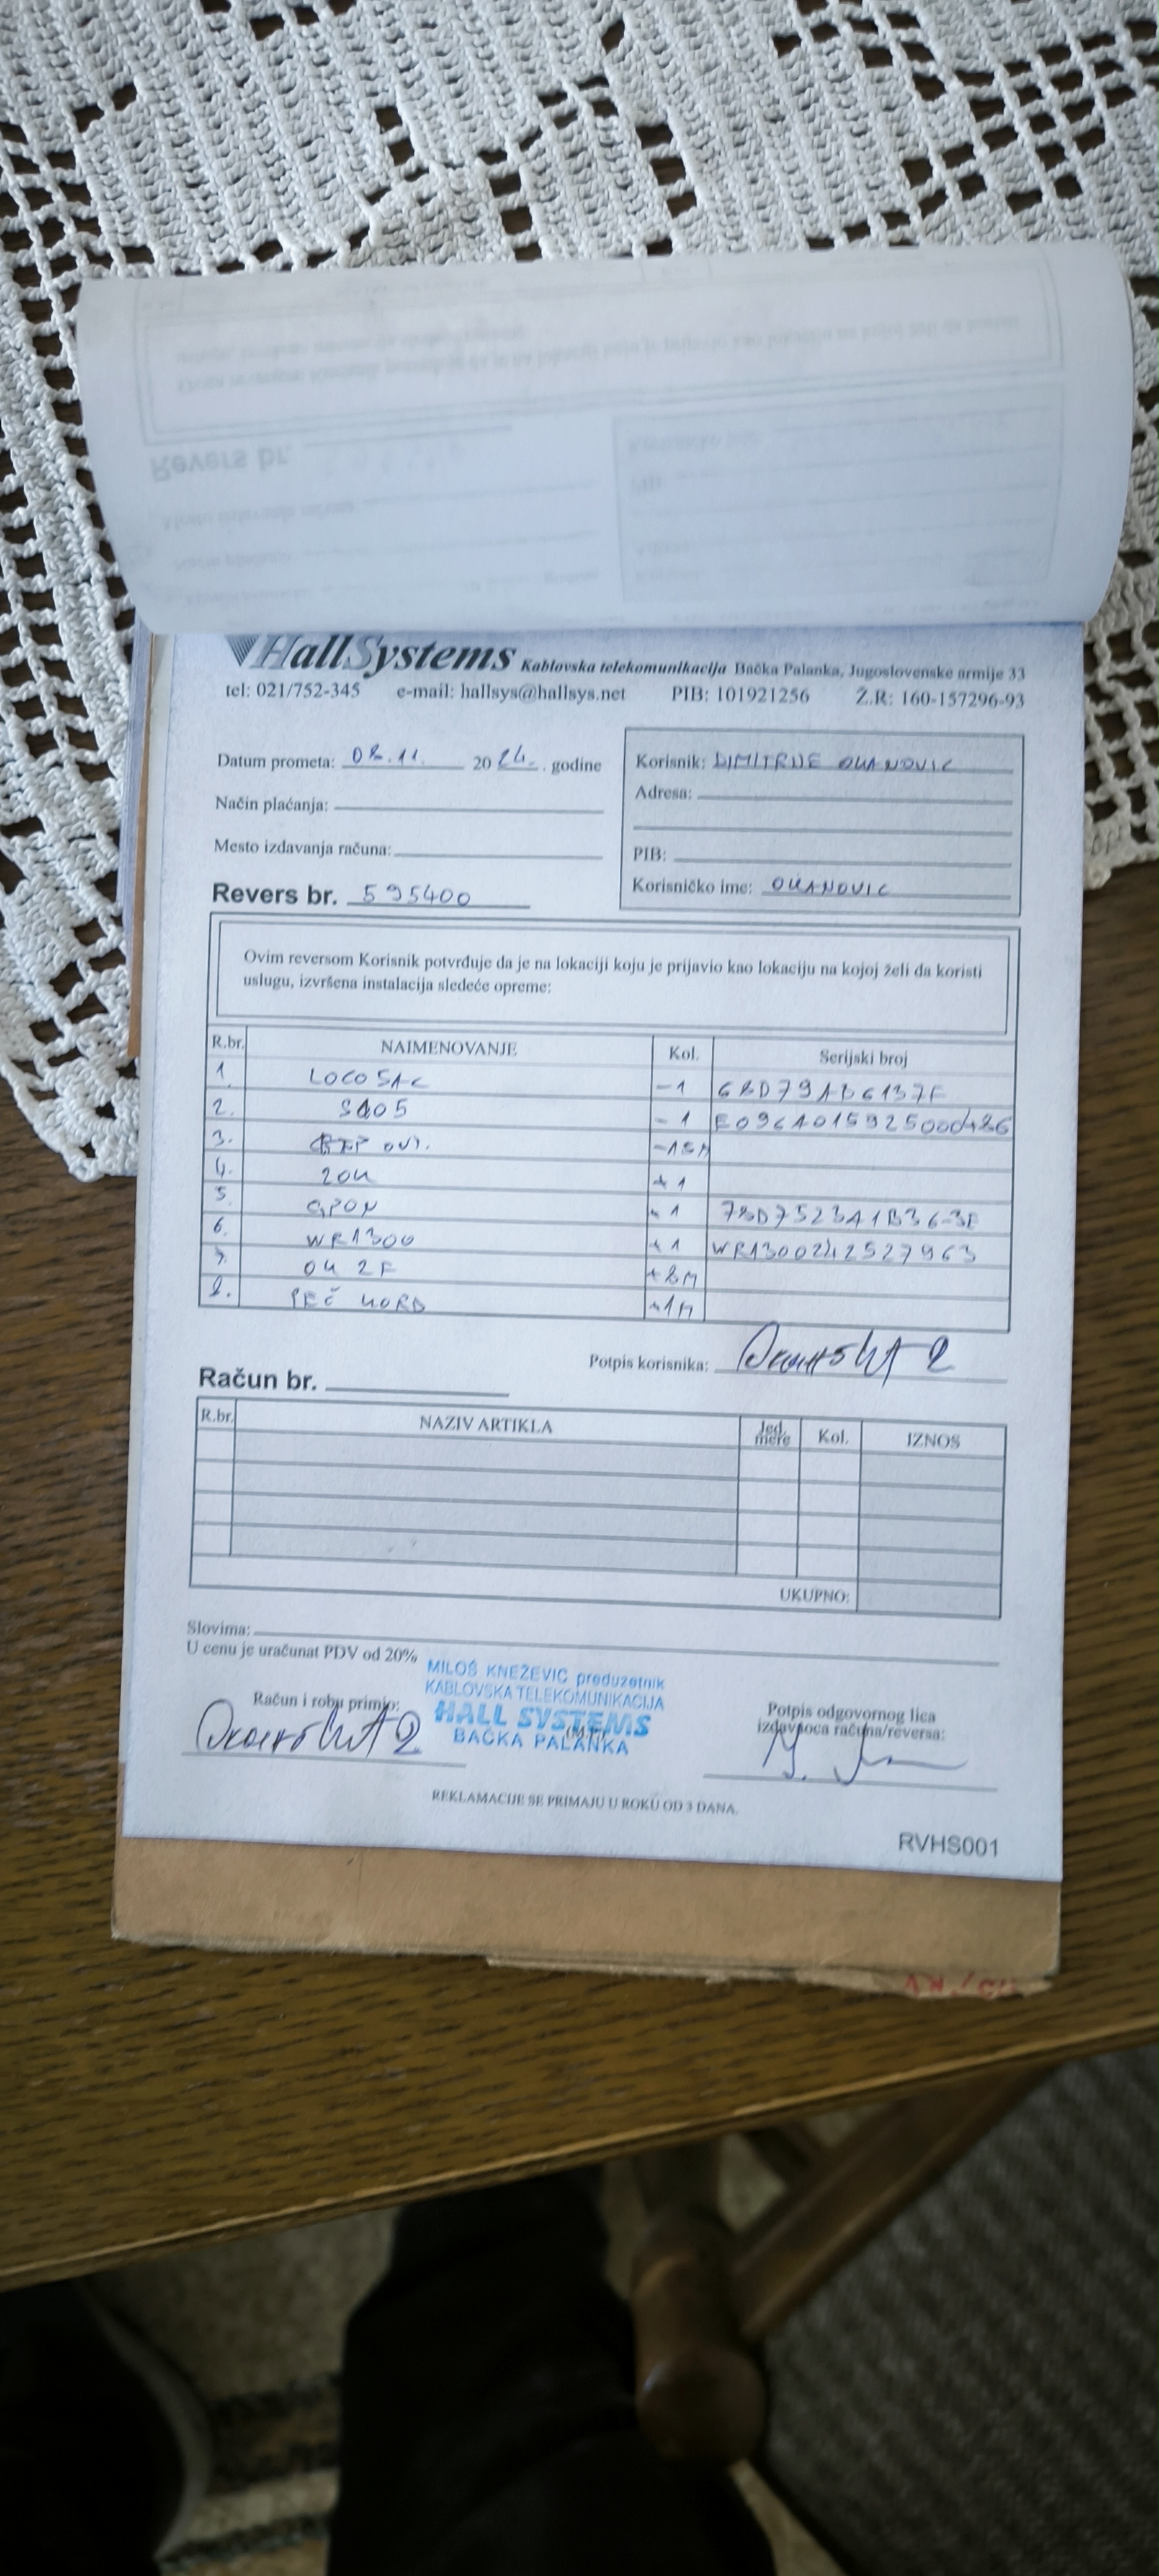 HallSystems Kablovska telekomunikacija Bačka Palanka, Jugoslovenske armije 33
tel: 021/752-345 e-mail: hallsys@hallsys.net PIB: 101921256 Ž.R: 160-157296-93
Datum prometa: 08.11. 2024. godine
Način plaćanja:
Mesto izdavanja računa:
Revers br. 595400
Korisnik: DIMITRIJE OKANOVIC
Adresa:
PIB:
Korisničko ime: OKANOVIC
Ovim reversom Korisnik potvrđuje da je na lokaciji koju je prijavio kao lokaciju na kojoj želi da koristi
uslugu, izvršena instalacija sledeće opreme:
R.br. NAIMENOVANJE Kol. Serijski broj
1. LOCO 5AC -1
2. -1
3. -15M
4. 20K +1
5. GPON +1
6. WR1300 +1 WR1300242527963
7. OK 2F +8M
8. PEČ KORD +1M
Potpis korisnika:
Račun br.
R.br. NAZIV ARTIKLA Jed. mere Kol. IZNOS
UKUPNO:
Slovima:
U cenu je uračunat PDV od 20%
MILOŠ KNEŽEVIĆ preduzetnik
KABLOVSKA TELEKOMUNIKACIJA
HALL SYSTEMS
BAČKA PALANKA
Račun i robu primio:
(M.P.)
Potpis odgovornog lica
izdavaoca računa/reversa:
REKLAMACIJE SE PRIMAJU U ROKU OD 3 DANA.
RVHS001